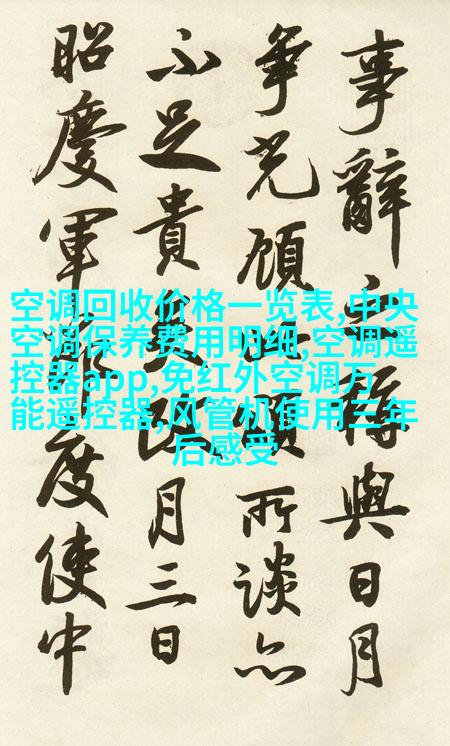 事辭得與日月
爭光顧所談亦
不足貴矣月三日
昭慶軍節度使中
空调回收价格一览表,中央
空调保养费用明细,空调遥
控器app,免红外空调万
能遥控器,风管机使用三年
后感受